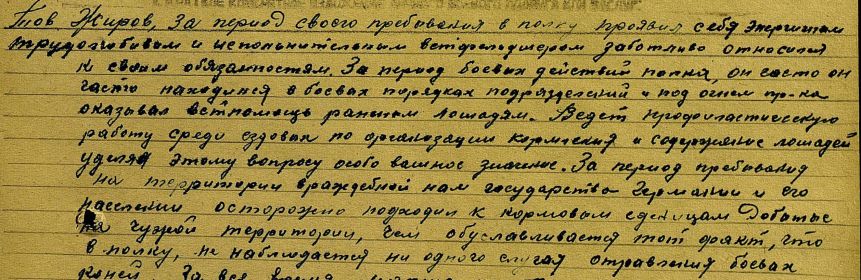 Тов. Жиров, за период своего пребывания в полку проявил себя энергичным
трудолюбивым и исполнительным ветфельдшером заботливо относился
к своим обязанностям. За период боевых действий полка, он часто он
часто находился в боевых порядках подразделений и под огнем пр-ка
оказывал ветпомощь раненым лошадям. Ведет профилактическую
работу среди ездовых по организации кормления и содержание лошадей
уделяя этому вопросу особо важное значение. За период пребывания
на территории враждебной нам государства Германии и его
населении осторожно подходил к кормовым единицам Добытые
на чужой территории, чем обуславливается тот факт, что
в полку, не наблюдается ни одного случая отравления боевых
коней. За все время